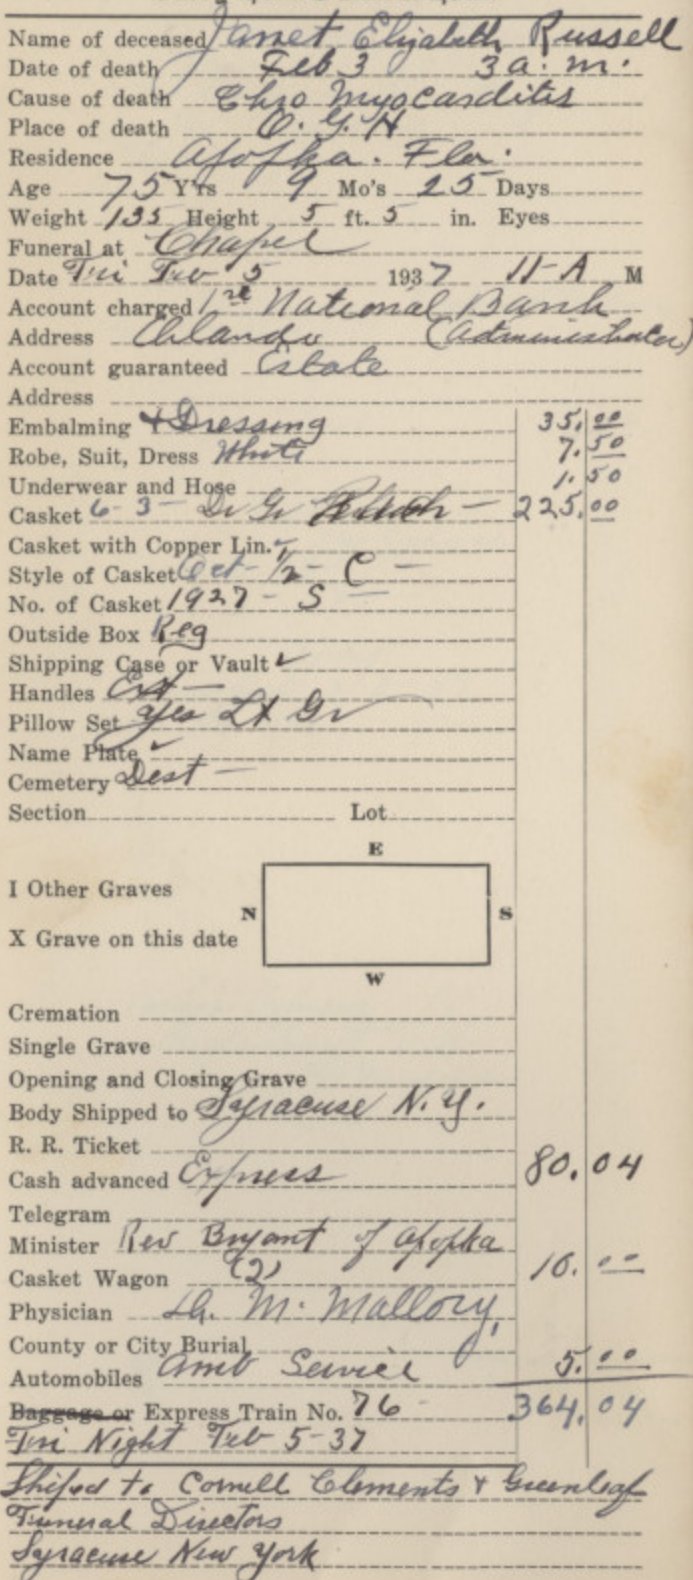 Name of deceased Janet Elizabeth Russell
Date of death Feb 3 3 a.m.
Cause of death Chro Myocarditis
Place of death O. G. H
Residence Apopka. Fla.
Age 75 Yrs 9 Mo's 25 Days
Weight 135 Height 5 ft. 5 in. Eyes
Funeral at Chapel
Date Fri Feb 5 1937 11-A M
Account charged 1st National Bank
Address Orlando (Administrator)
Account guaranteed Estate
Address
Embalming + Dressing 35.00
Robe, Suit, Dress White 7.50
Underwear and Hose 1.50
Casket 6-3- Gr Plush - 225.00
Casket with Copper Lin.
Style of Casket Oct- 1/2- C -
No. of Casket 1927 - S
Outside Box Reg
Shipping Case or Vault ✓
Handles Ext -
Pillow Set yes Lt Gr
Name Plate ✓
Cemetery Dest -
Section Lot
E
I Other Graves
N S
X Grave on this date
W
Cremation
Single Grave
Opening and Closing Grave
Body Shipped to Syracuse N.Y.
R. R. Ticket
Cash advanced Express 80.04
Telegram
Minister Rev Bryant of Apopka
Casket Wagon (2) 10.00
Physician M. Mallory,
County or City Burial
Automobiles Amb Service 5.00
Baggage or Express Train No. 76 - 364.04
Fri Night Feb 5-37
Shiped to Cornell Clements + Greenleaf
Funeral Directors
Syracuse New York